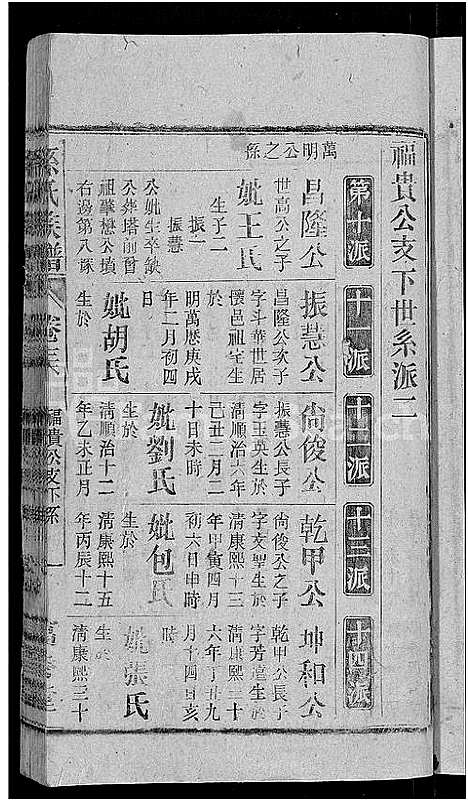 福貴公支下世系派二
第十派
十一派
十二派
十三派
十四派
萬明公之孫
昌隆公
世高公之子
妣王氏
生子二
振一
振慧
公妣生卒缺
公葬塔前曾
祖肇懋公墳
右邊第八塚
振慧公
昌隆公次子
字斗華世居
懷邑祖宅生
於
明萬歷庚戌
年二月初四
日
妣胡氏
生於
尙俊公
振慧公長子
字玉英生於
清順治六年
己丑二月二
十日未時
妣劉氏
生於
清順治十二
年乙未正月
乾甲公
尙俊公之子
字文聖生於
清康熙十三
年甲寅四月
初六日申時
妣包氏
生於
清康熙十五
年丙辰十二
坤和公
乾甲公長子
字芳 生於
清康熙三十
六年丁丑九
月十四日亥
時
妣張氏
生於
清康熙三十
孫氏族譜
卷三
福貴公支下系
一